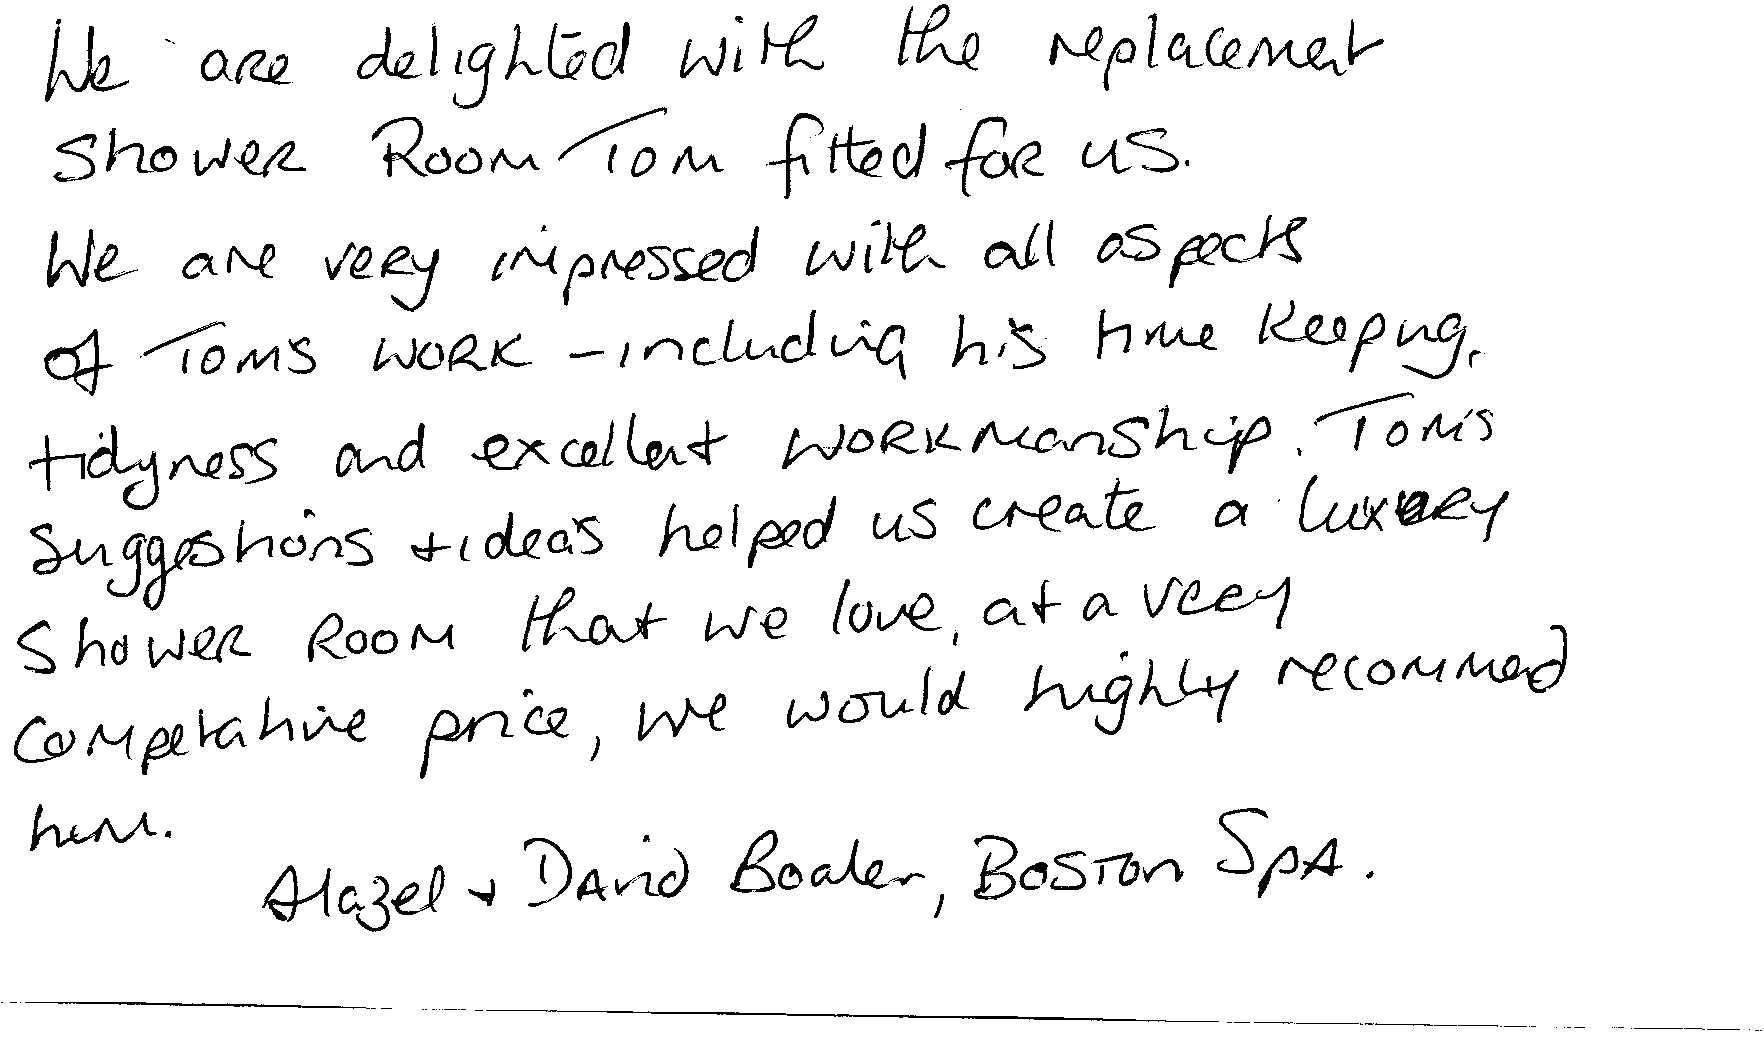 We are delighted with the replacement
Shower Room Tom fitted for us.
We are very impressed with all aspects
of Tom's work - including his time keeping,
tidyness and excellent workmanship. Tom's
suggestions + ideas helped us create a luxury
shower room that we love, at a very
competative price, we would highly recommend
him.
Hazel + David Boaler, Boston Spa.